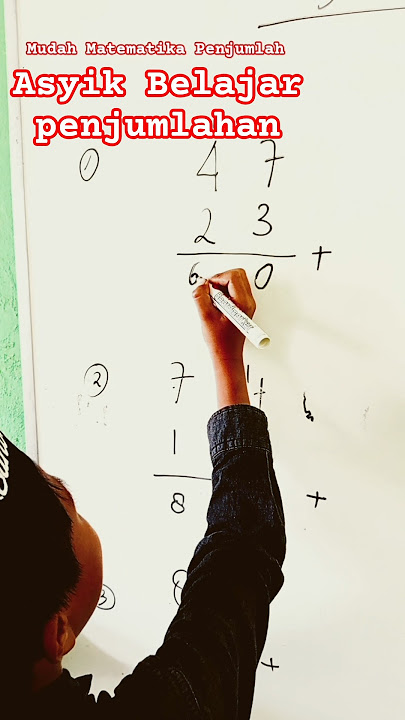 Mudah Matematika Penjumlah
Asyik Belajar
penjumlahan
1 4 7
2 3
+
6 0
2 7
1
8 +
3
+